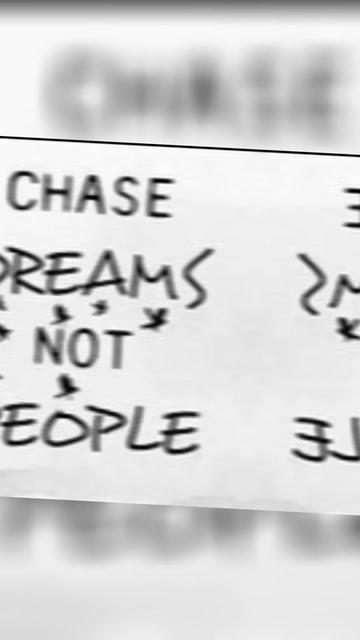 CHASE
DREAMS
NOT
PEOPLE